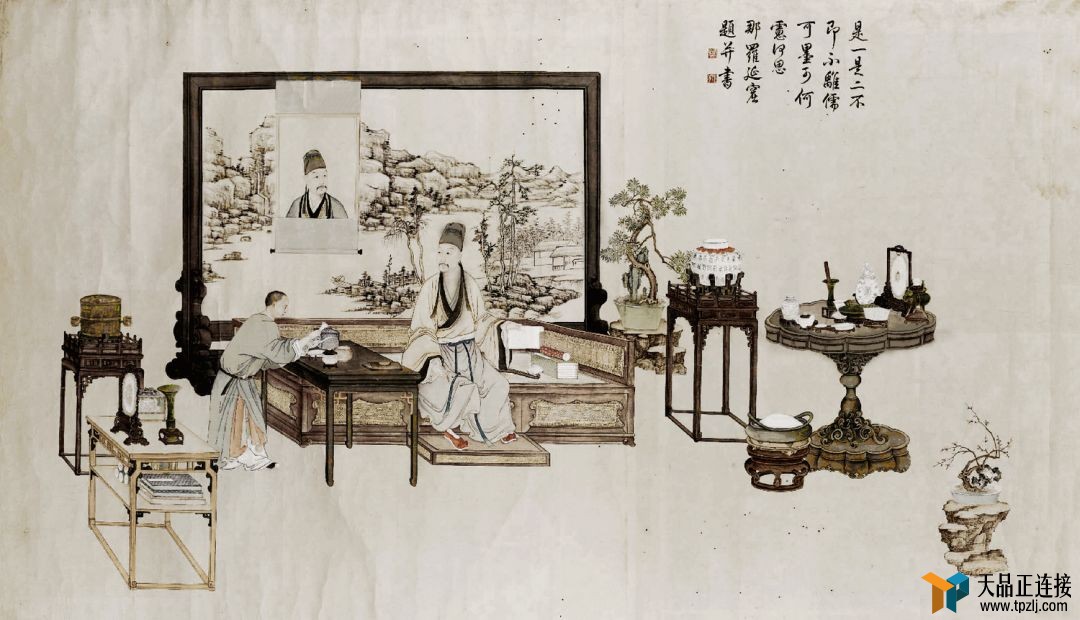 是一是二不
即不離儒
可墨可何
慮何思
那羅延窟
題并書
天品正连接
www.tpzlj.com